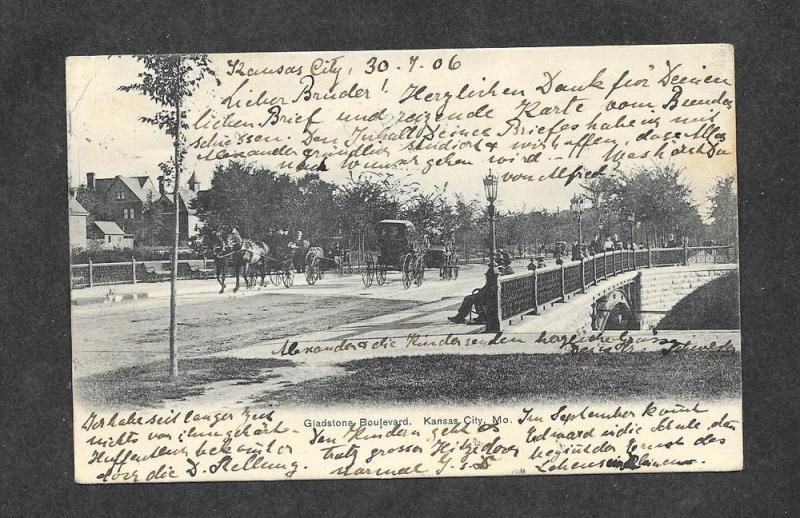 Kansas City, 30.7.06
Lieber Bruder! Herzlichen Dank für Deinen
lieben Brief und reizende Karte vom Bunder
schiessen. Den Inhalt Deines Briefes haben wir
Alexander gründlich studiert & wir hoffen, dass Alles
nach Wunsch gehen wird. Was hörst Du
von Alfred
Alexander & die Kinder senden herzliche Grüsse
Deine Schwester
Ich habe seit langer Zeit
nichts von ihm gehört.
Hoffentlich bekommt er
doch die Stellung.
Den Kindern geht es
trotz grosser Hitze doch
normal
Im September kommt
Edward in die Schule, da
beginnt der Ernst des
Lebens im Kleinen
Gladstone Boulevard. Kansas City, Mo.